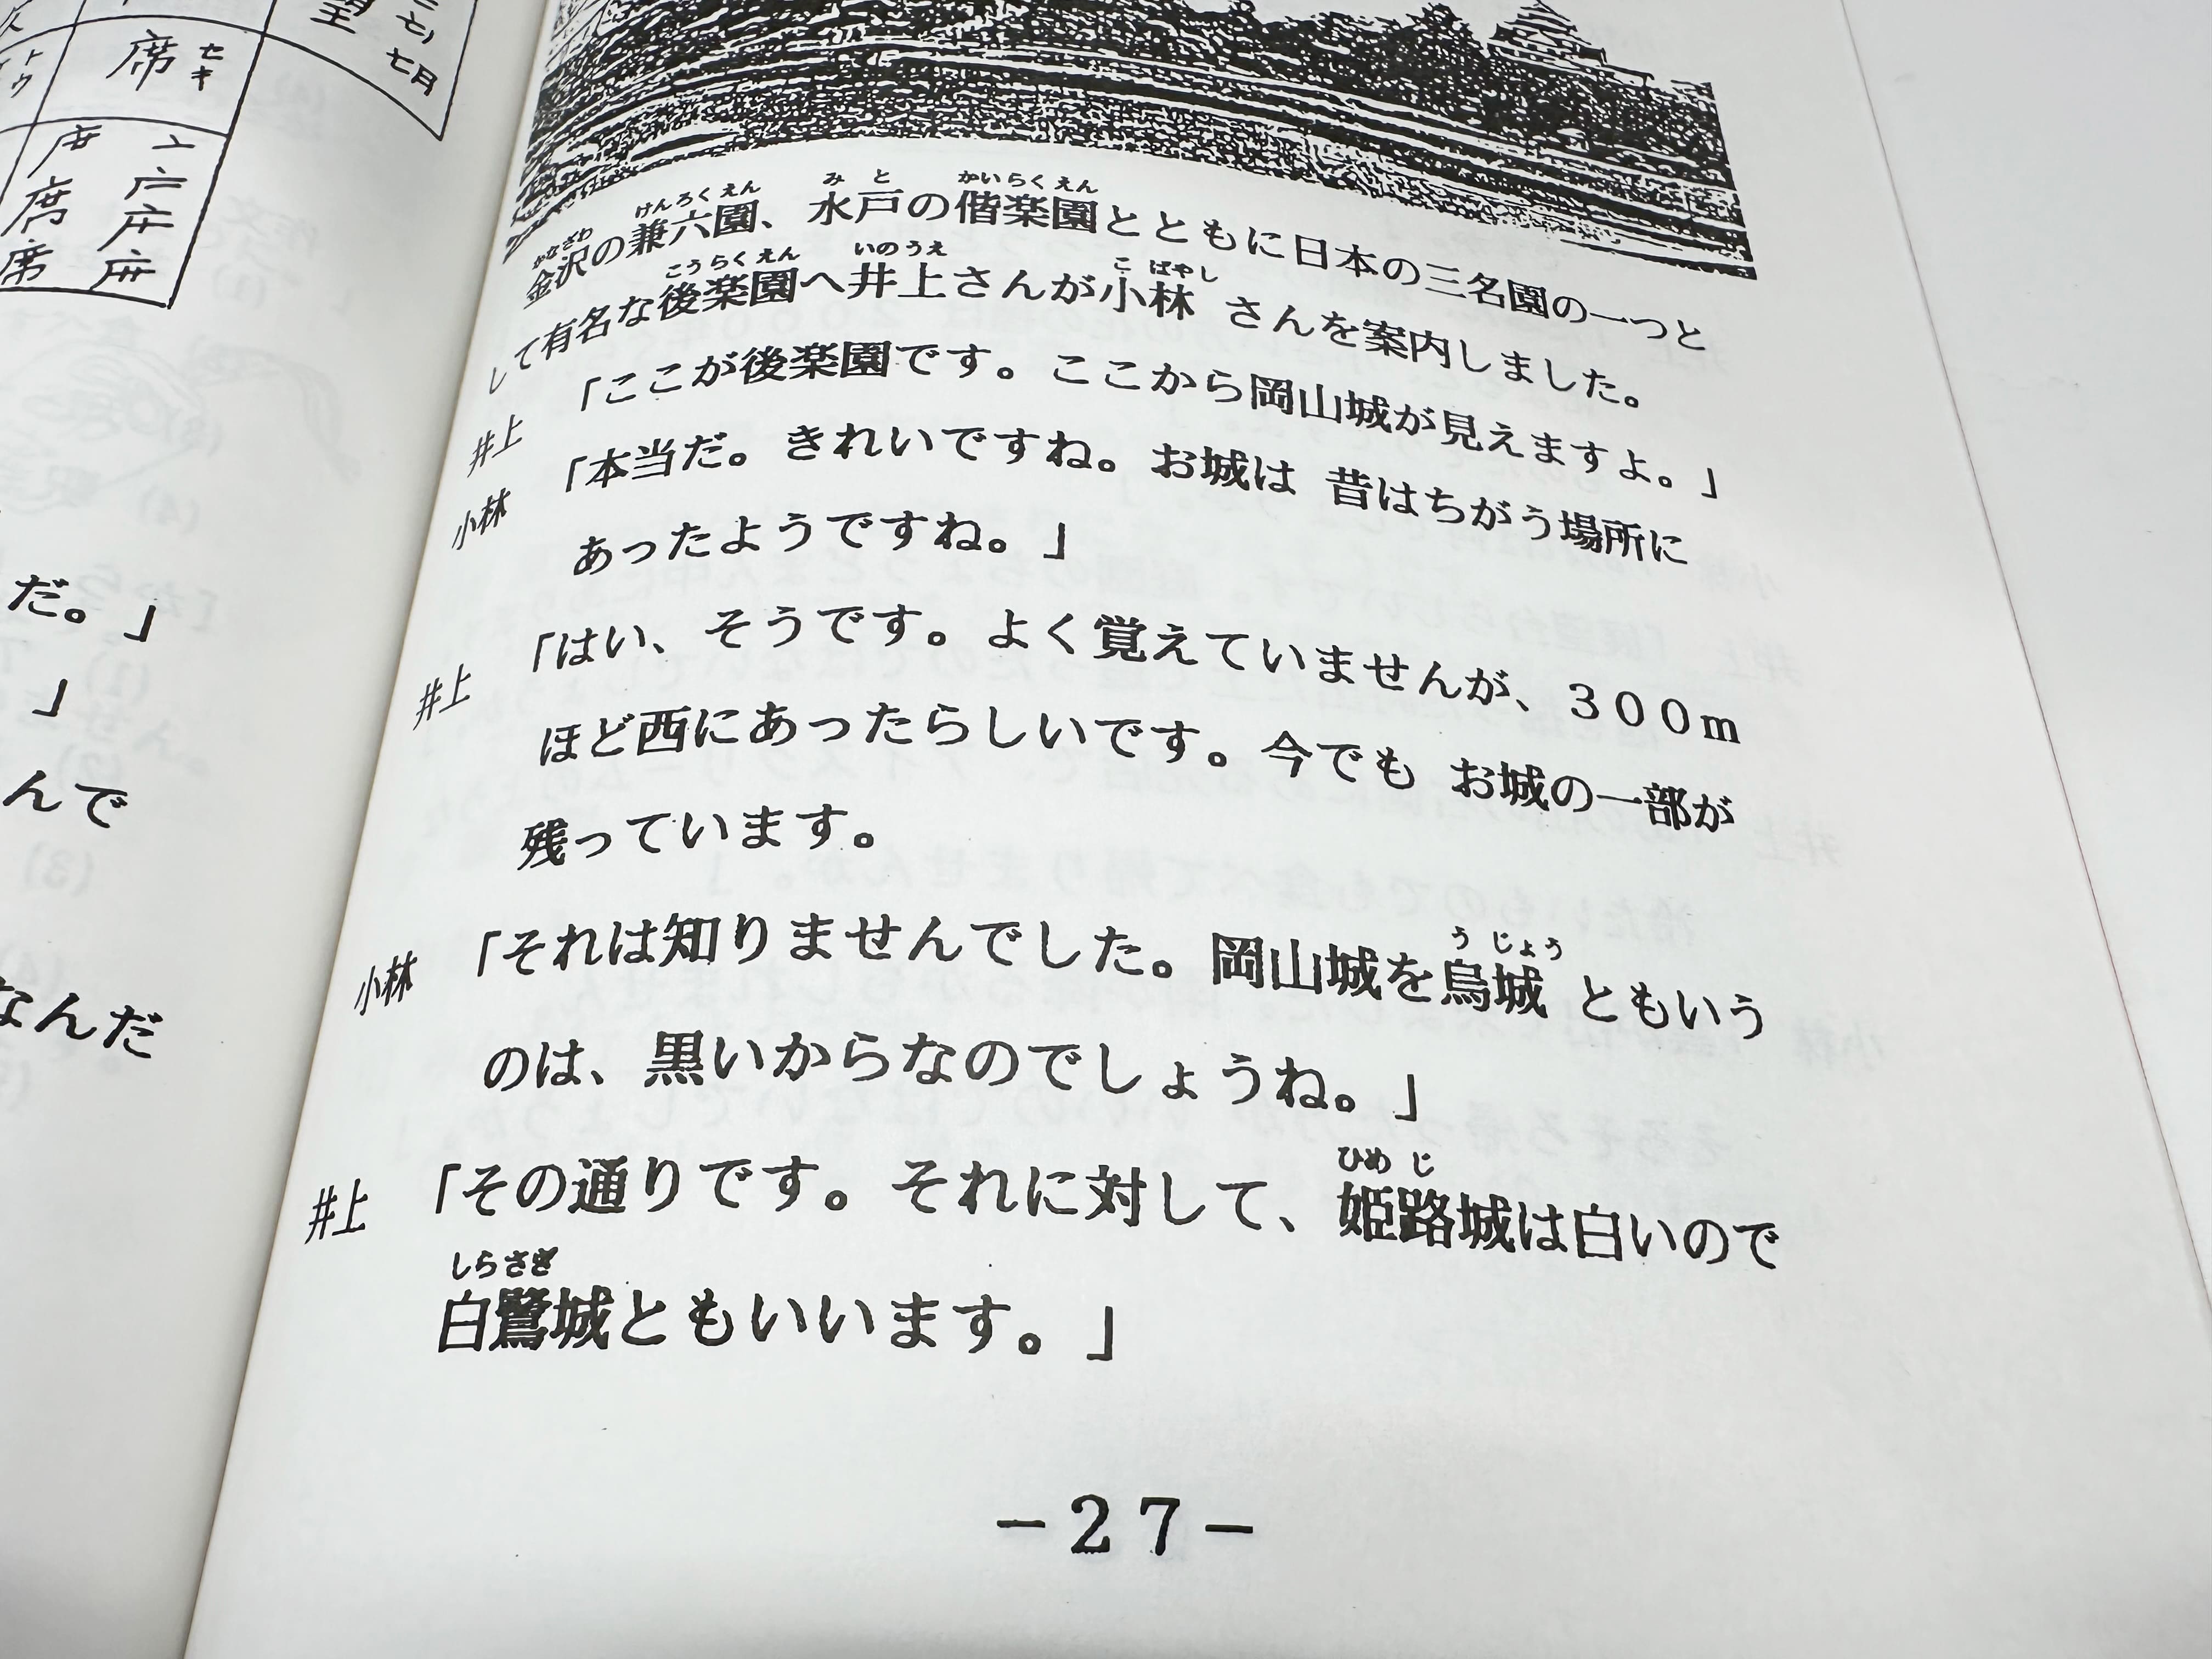 席 セキ
トウ
七月
广 亠
席 广
席 庐
だ。」
」
んで
なんだ
かなざわ けんろくえん みと かいらくえん
金沢の兼六園、水戸の偕楽園とともに日本の三名園の一つと
こうらくえん いのうえ こばやし
して有名な後楽園へ井上さんが小林 さんを案内しました。
井上 「ここが後楽園です。ここから岡山城が見えますよ。」
小林 「本当だ。きれいですね。お城は 昔はちがう場所に
あったようですね。」
井上 「はい、そうです。よく覚えていませんが、300m
ほど西にあったらしいです。今でも お城の一部が
残っています。
うじょう
小林 「それは知りませんでした。岡山城を烏城 ともいう
のは、黒いからなのでしょうね。」
ひめじ
井上 「その通りです。それに対して、姫路城は白いので
しらさぎ
白鷺城ともいいます。」
－27－